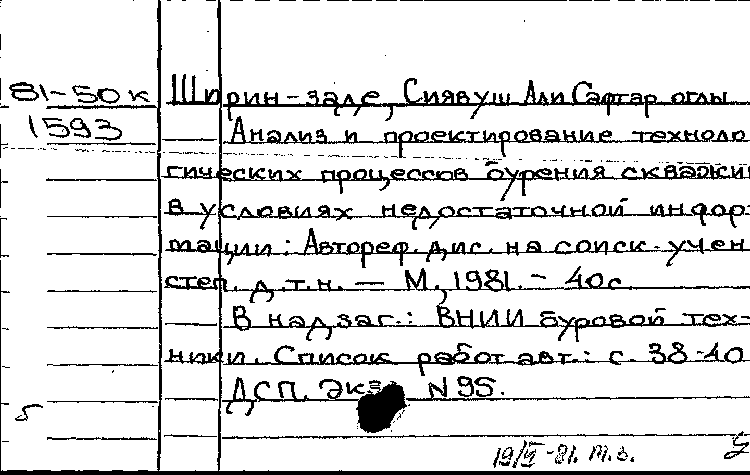 81-50к Ширин-заде, Сиявуш Али Сафтар оглы
1593 Анализ и проектирование техноло
гических процессов бурения скважин
в условиях недостаточной инфор-
мации: Автореф. дис. на соиск. учен
степ. д.т.н. — М., 1981. - 40с.
В надзаг.: ВНИИ буровой тех-
ники. Список работ авт.: с. 38-40
ДСП. Экз. N 95.
5